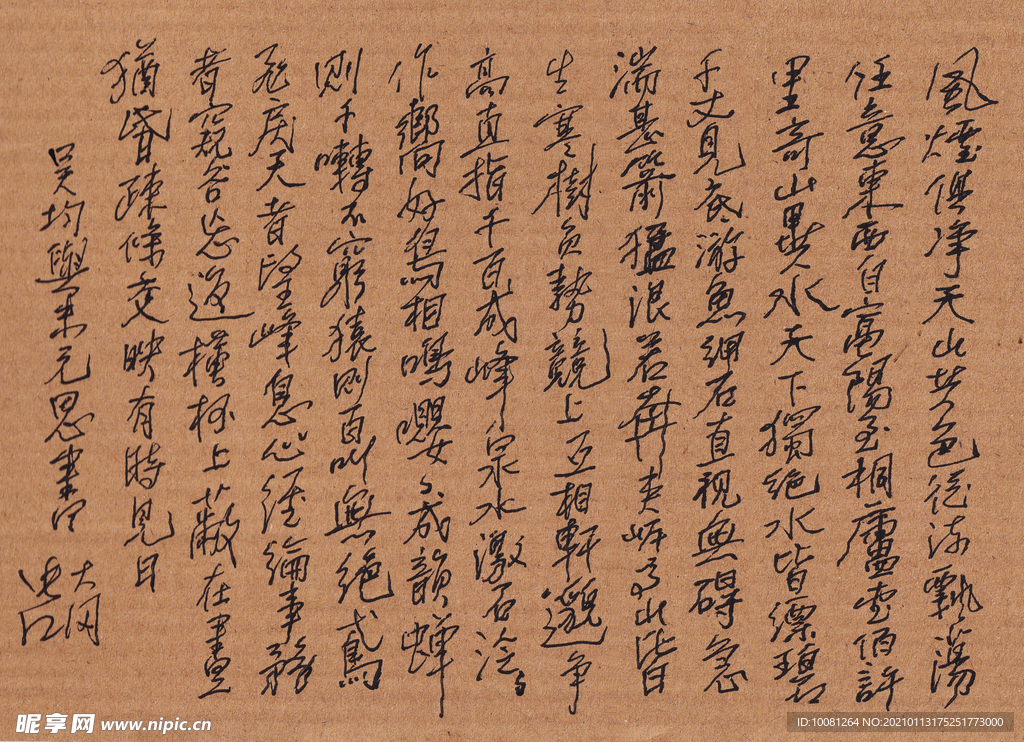 風煙俱净天山共色從流飄蕩
任意東西自富陽至桐廬壹佰許
里奇山異水天下獨絶水皆漂碧
千丈見底游魚細石直視無碍急
湍甚箭猛浪若奔夹岸高山皆
生寒樹負勢競上互相軒邈争
高直指千百成峰泉水激石泠々
作嚮好鳥相鳴嚶々成韻蝉
則千囀不窮猿則百叫無絶鳶
飛戾天者望峰息心經綸事務
者窺谷忘返橫柯上蔽在晝
猶昏疎條交映有時見日
吴均與朱元思書
大冈
昵享网 www.nipic.cn
ID:10081264 NO:20210113175251773000